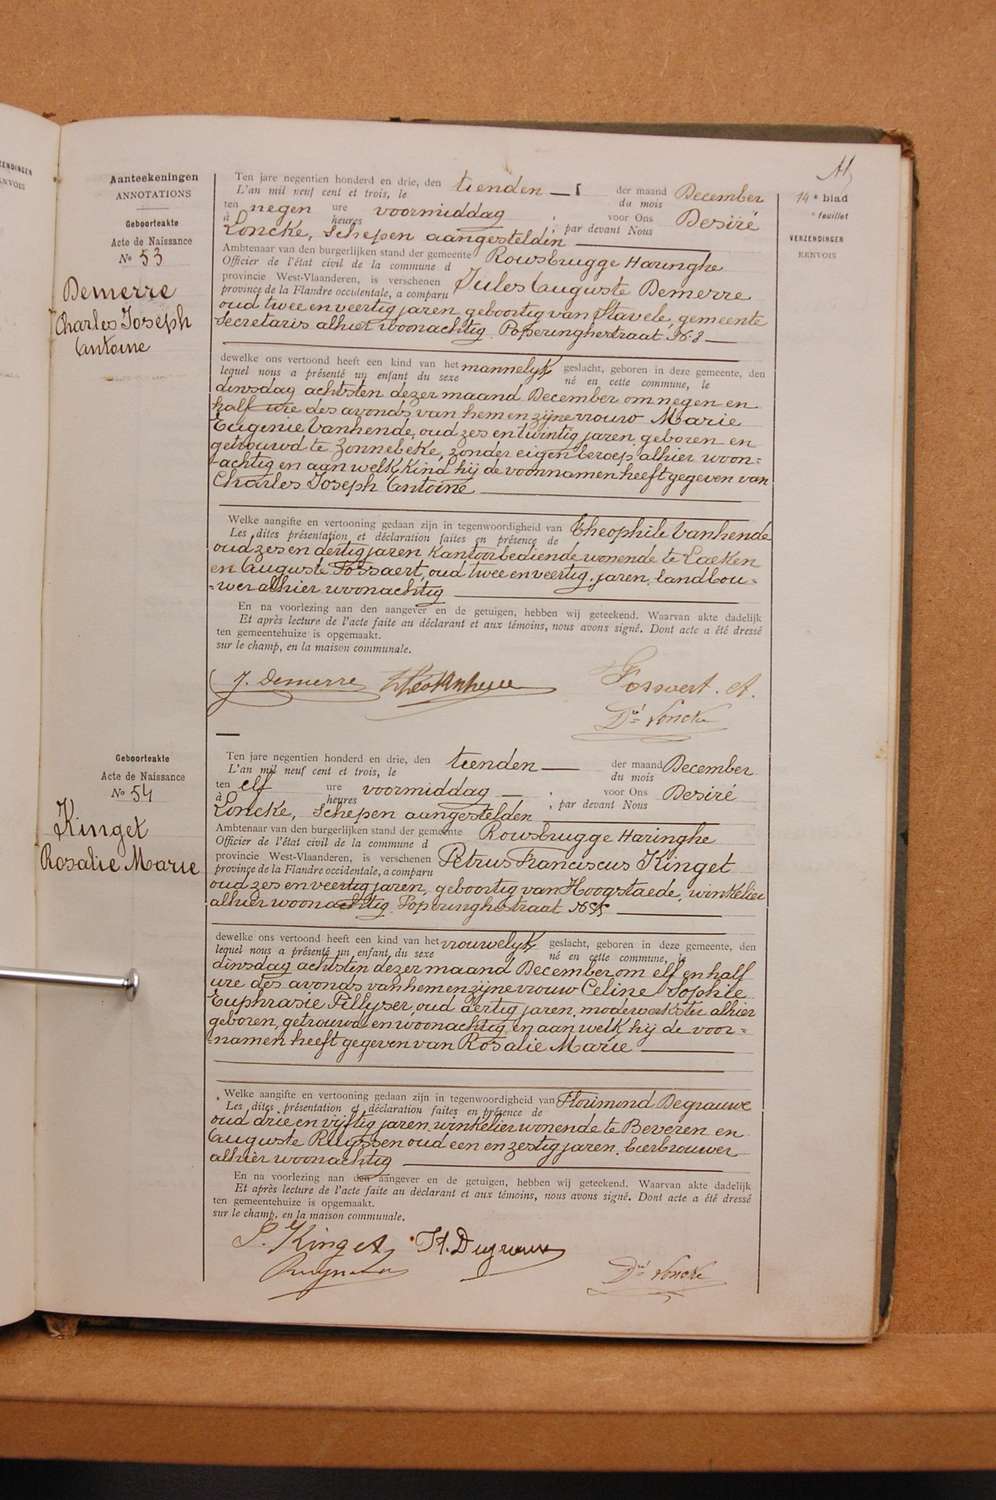 Aanteekeningen
ANNOTATIONS
Geboorteakte
Acte de Naissance
No 53
Demerre
Charles Joseph
Antoine
Ten jare negentien honderd en drie, den tienden der maand December
L'an mil neuf cent et trois, le du mois
ten negen ure voormiddag, voor Ons Desiré
à heures par devant Nous
Loncke, Schepen aangesteld in
Ambtenaar van den burgerlijken stand der gemeente Rousbrugge Haringhe
Officier de l'état civil de la commune d
provincie West-Vlaanderen, is verschenen Jules Auguste Demerre
province de la Flandre occidentale, a comparu
oud twee en veertig jaren, geboortig van Stavele, gemeente
secretaris alhier woonachtig Poperinghestraat No 8
dewelke ons vertoond heeft een kind van het mannelyk geslacht, geboren in deze gemeente, den
lequel nous a présenté un enfant du sexe né en cette commune, le
dinsdag achtsten dezer maand December om negen en
half ure des avonds van hem en zijne vrouw Marie
Eugenie Vanhende, oud zes en twintig jaren geboren en
getrouwd te Zonnebeke, zonder eigen beroep alhier woon-
achtig en aan welk kind hij de voornamen heeft gegeven van
Charles Joseph Antoine
Welke aangifte en vertooning gedaan zijn in tegenwoordigheid van Theophile Vanhende
Les dites présentation et déclaration faites en présence de
oud zes en dertig jaren Kantoorbediende wonende te Laeken
en Auguste Fossaert, oud twee en veertig jaren, landbou-
wer alhier woonachtig
En na voorlezing aan den aangever en de getuigen, hebben wij geteekend. Waarvan akte dadelijk
Et après lecture de l'acte faite au déclarant et aux témoins, nous avons signé. Dont acte a été dressé
ten gemeentehuize is opgemaakt.
sur le champ, en la maison communale.
J. Demerre
Fossaert. A.
Dré Loncke
Geboorteakte
Acte de Naissance
No 54
Kinget
Rosalie Marie
Ten jare negentien honderd en drie, den tienden der maand December
L'an mil neuf cent et trois, le du mois
ten elf ure voormiddag, voor Ons Desiré
à heures, par devant Nous
Loncke, Schepen aangesteld in
Ambtenaar van den burgerlijken stand der gemeente Rousbrugge Haringhe
Officier de l'état civil de la commune d
provincie West-Vlaanderen, is verschenen Petrus Franciscus Kinget
province de la Flandre occidentale, a comparu
oud zes en veertig jaren, geboortig van Hoogstaede, winkelier
alhier woonachtig Poperinghestraat No
dewelke ons vertoond heeft een kind van het vrouwelyk geslacht, geboren in deze gemeente, den
lequel nous a présenté un enfant du sexe né en cette commune, le
dinsdag achtsten dezer maand December om elf en half
ure des avonds van hem en zijne vrouw Celine Sophie
Euphrasie Pillyser, oud dertig jaren, modewerkster alhier
geboren, getrouwd en woonachtig en aan welk hij de voor-
namen heeft gegeven van Rosalie Marie
Welke aangifte en vertooning gedaan zijn in tegenwoordigheid van Florimond Degrauwe
Les dites présentation et déclaration faites en présence de
oud drie en vijftig jaren, winkelier wonende te Beveren en
Auguste Ruyssen oud een en zestig jaren, bierbrouwer
alhier woonachtig
En na voorlezing aan den aangever en de getuigen, hebben wij geteekend. Waarvan akte dadelijk
Et après lecture de l'acte faite au déclarant et aux témoins, nous avons signé. Dont acte a été dressé
ten gemeentehuize is opgemaakt.
sur le champ, en la maison communale.
P. Kinget Fl. Degrauwe
Dré Loncke
14e blad
e feuillet
VERZENDINGEN
RENVOIS